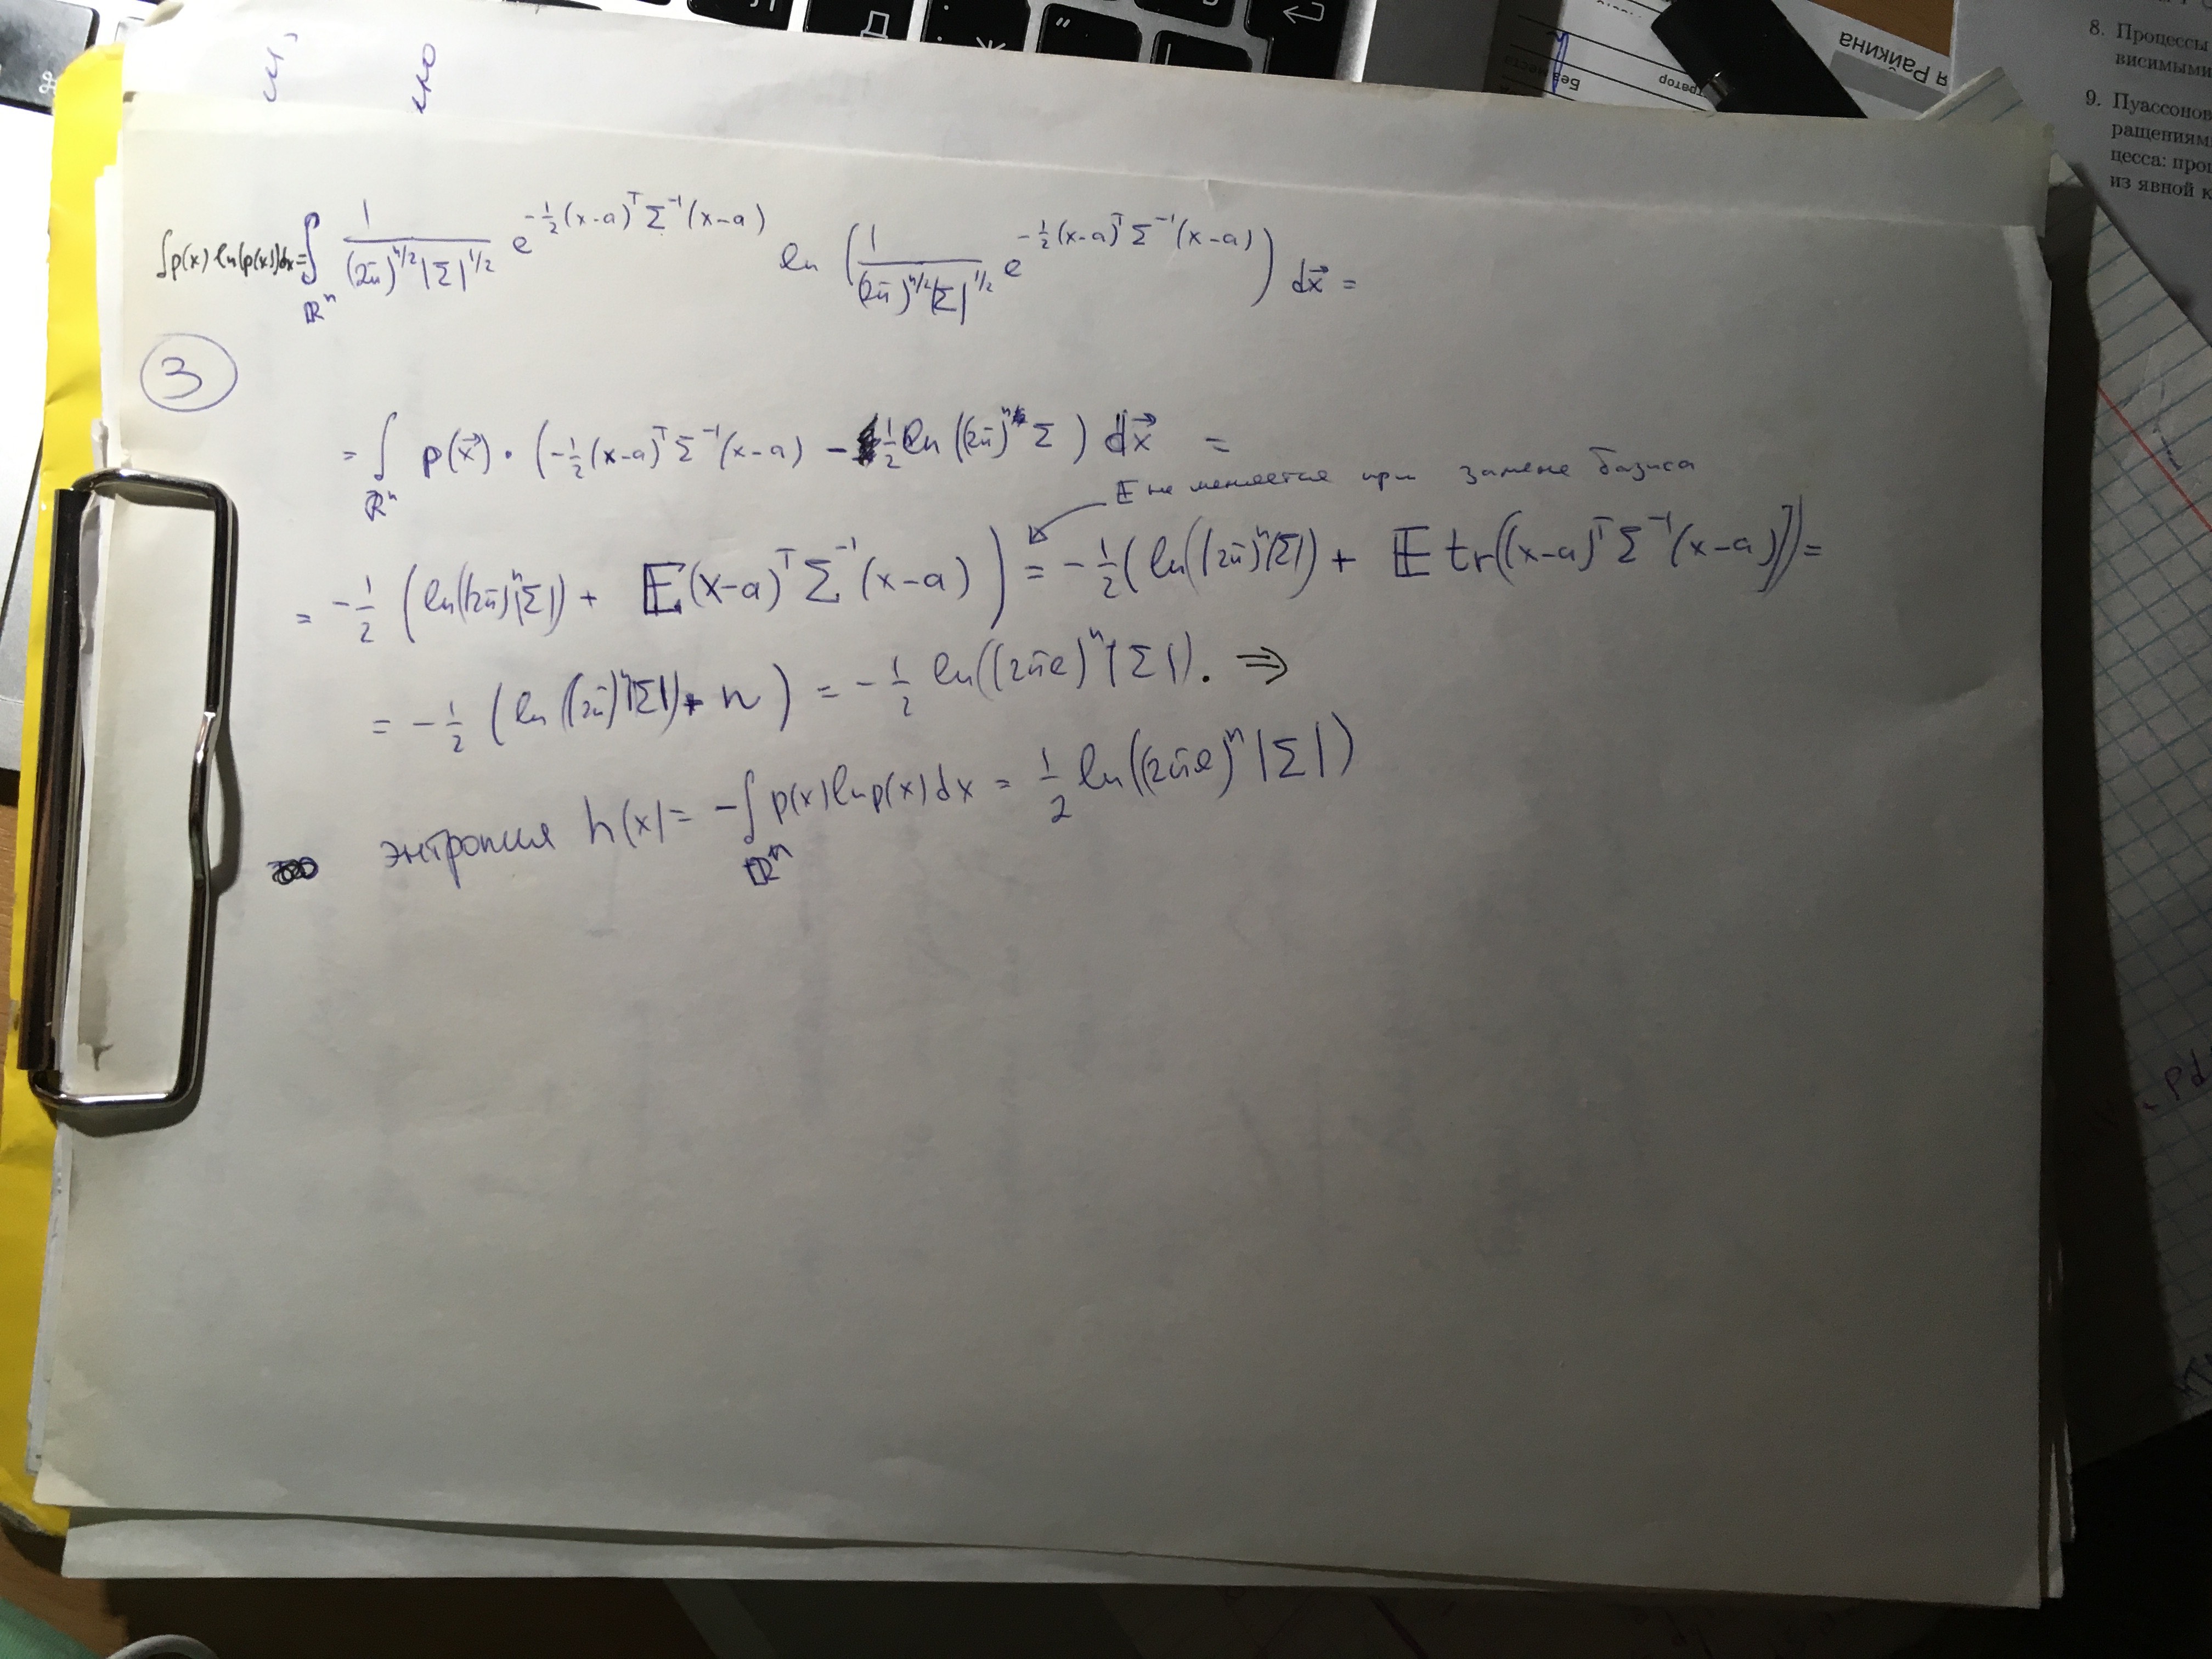 8. Процессы
висимыми
9. Пуассонов
ращениями
цесса: проц
из явной к
я Райкина
тратор
Без места
∫p(x) ln(p(x))dx = ∫_{ℝ^n} 1/((2π)^{n/2}|Σ|^{1/2}) e^{-½(x-a)^T Σ^{-1}(x-a)} ln (1/((2π)^{n/2}|Σ|^{1/2}) e^{-½(x-a)^T Σ^{-1}(x-a)}) dx⃗ =
3
= ∫_{ℝ^n} p(x⃗) · (-½(x-a)^T Σ^{-1}(x-a) - ½ ln((2π)^n Σ) dx⃗ =
E не меняется при замене базиса
= -½ (ln((2π)^n|Σ|) + E(x-a)^T Σ^{-1}(x-a)) = -½(ln((2π)^n|Σ|) + E tr((x-a)^T Σ^{-1}(x-a))) =
= -½ (ln((2π)^n|Σ|) + n) = -½ ln((2πe)^n|Σ|). ⇒
энтропия h(x) = -∫_{ℝ^n} p(x) ln p(x) dx = ½ ln((2πe)^n |Σ|)